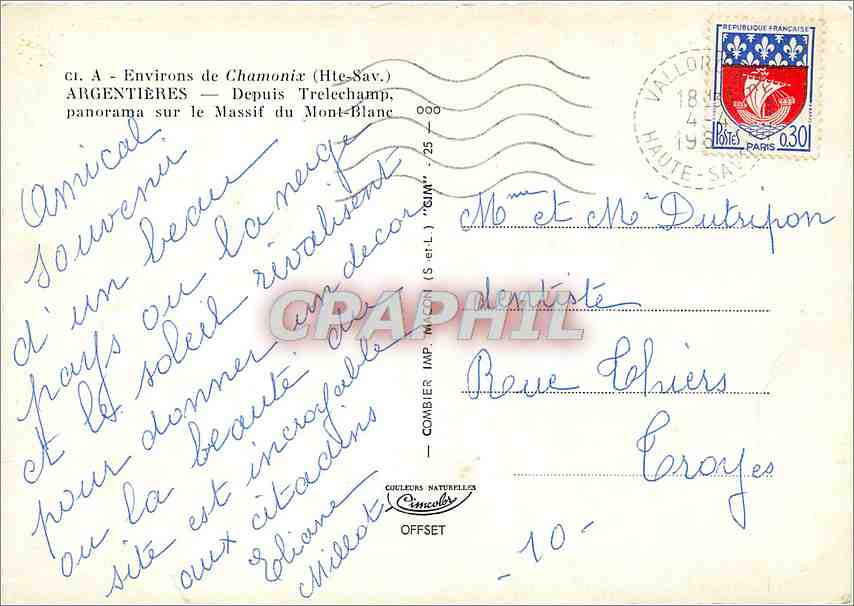 CI. A - Environs de Chamonix (Hte-Sav.)
ARGENTIÈRES — Depuis Trelechamp,
panorama sur le Massif du Mont-Blanc
Amical
souvenir
d'un beau
pays ou la neige
et le soleil rivalisent
pour donner un decor
ou la beauté du
site est incroyable
aux citadins
Eliane
Millot
COMBIER IMP. MACON (S.-et-L.) "CIM" - 25 - 000
COULEURS NATURELLES
Cimcolor
OFFSET
REPUBLIQUE FRANÇAISE
POSTES
0,30
PARIS
VALLOR
18
4-4
19
HAUTE-SAV
Mme et Mr Dutripon
dentiste
Rue Thiers
Troyes
-10-
CRAPHIL